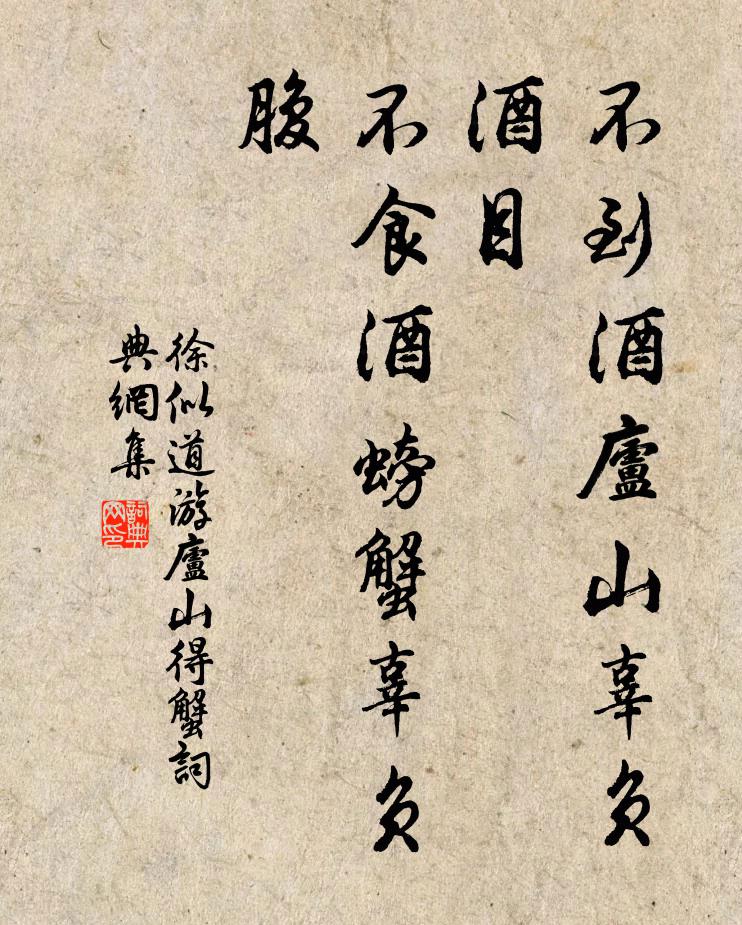 不到酒廬山辜負
酒目
不食酒螃蟹辜負
腹
徐似道游廬山得蟹詞
典網集
詞典網印